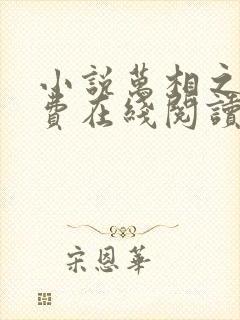 小說萬相之
費在綫閱讀
宋恩華